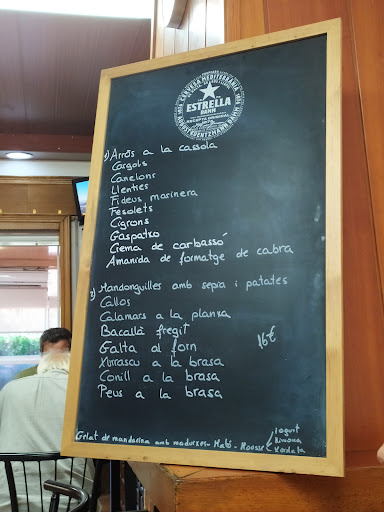 CERVEZA MEDITERRÁNEA
ESTRELLA
DAMM
1) Arròs a la cassola
Cargols
Canelons
Llenties
Fideus marinera
Fesolets
Cigrons
Gaspatxo
Crema de carbassó
Amanida de formatge de cabra
2) Mandonguilles amb sepia i patates
Callos
Calamars a la planxa
Bacallà fregit
Galta al forn 16€
Xurrasco a la brasa
Conill a la brasa
Peus a la brasa
Gelat de mandarina amb maduixes - Mató - Mousse
iogurt
llimona
Xocolata